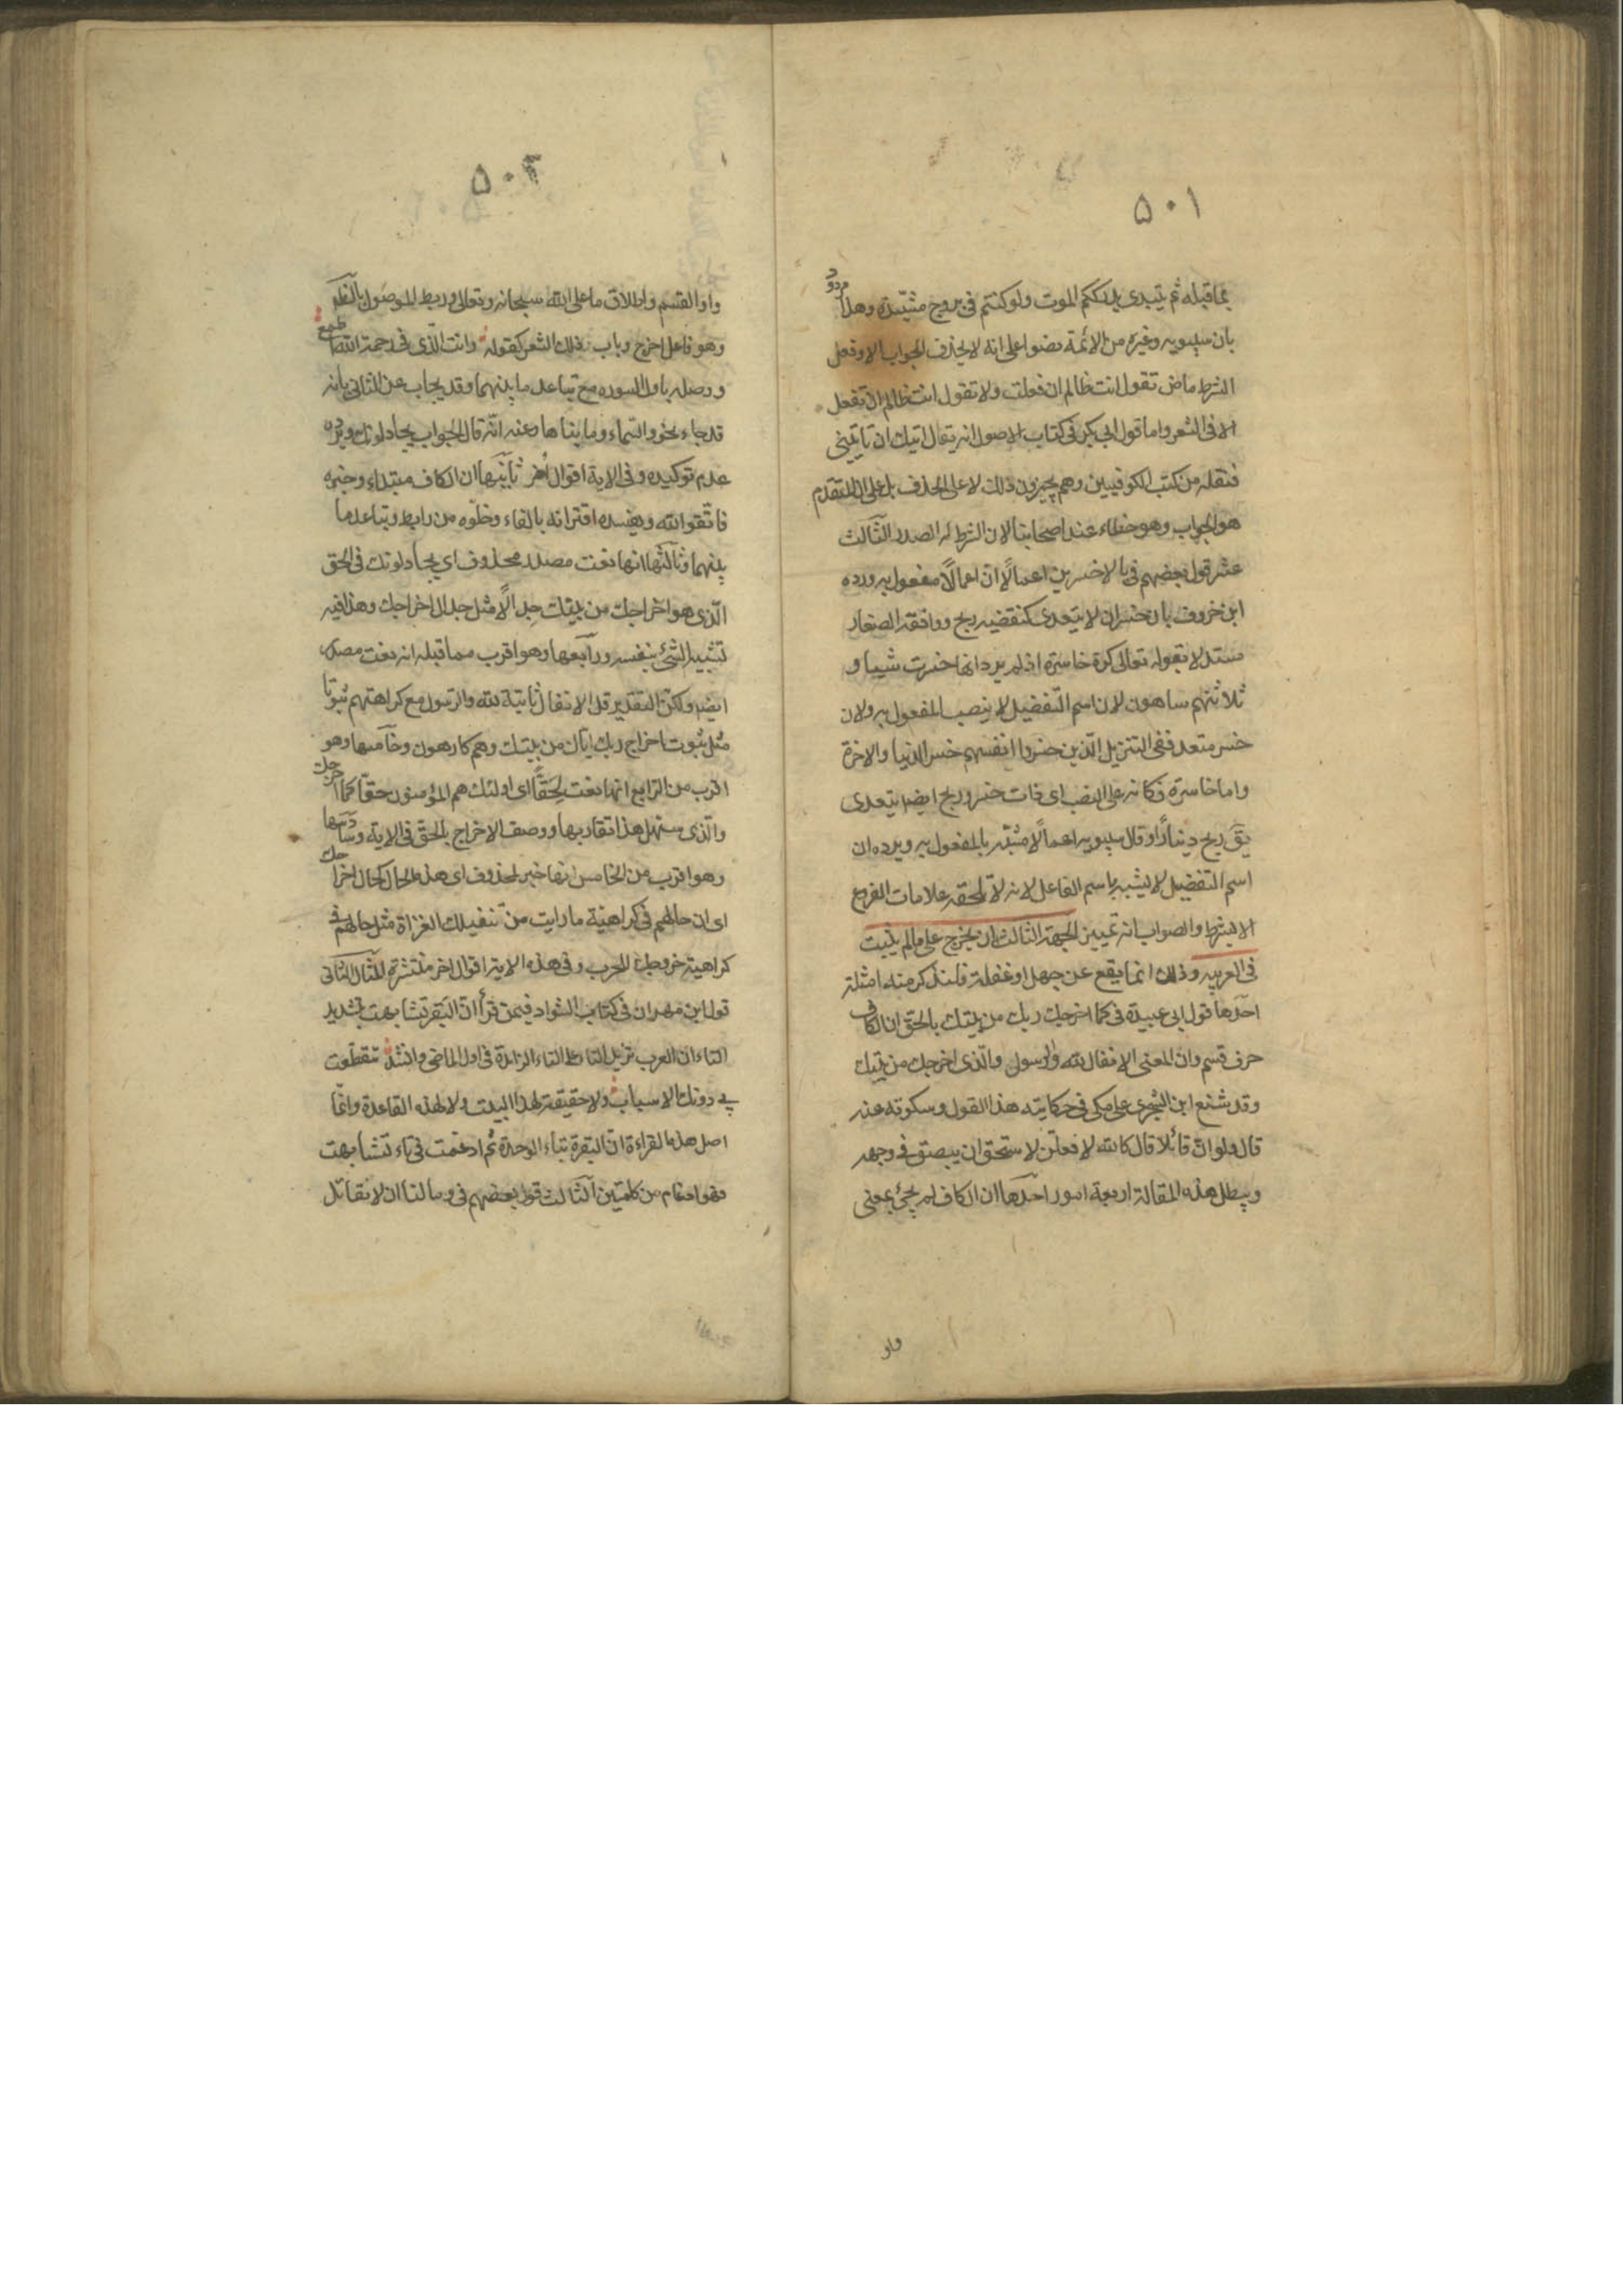 ٥٠١
بما قبله ثم يبتدى يدرككم الموت ولو كنتم فى بروج مشيّدة وهذا مردود
بان سيبويه وغيره من الائمة نصوا على انه لا يحذف الجواب الا وفعل
الشرط ماض تقول انت ظالم ان فعلت ولا تقول انت ظالم ان تفعل
الا فى الشعر واما قول ابى بكر فى كتاب الاصول انه يقال اتيك ان تاتينى
فنقله من كتب الكوفيين وهم يجيزون ذلك لا على الحذف بل على ان المتقدم
هو الجواب وهو خطاء عند اصحابنا لان الشرط له الصدر الثالث
عشر قول بعضهم فى بالاخسرين اعمالًا ان اعمالًا مفعول به ورده
ابن خروف بان خسر ان لا يتعدى كنقيضه ربح ووافقه الصفار
مستدلا بقوله تعالى كرة خاسرة اذ لم يرد انها خسرت شيا و
ثلاثتهم ساهون لان اسم التفضيل لا ينصب المفعول به ولان
خسر متعد ففى التنزيل الّذين خسروا انفسهم خسر الدنيا والاخرة
واما خاسرة فكانه على النسب اى ذات خسر وربح ايضا يتعدى
يقَ ربح دينارًا وقال سيبويه اعمالًا مشبّه بالمفعول به ويرده ان
اسم التفضيل لا يشبه باسم الفاعل لانه لا تلحقه علامات الفروع
الا بشرط والصواب انه تمييز الجهة الثالث ان يخرج على ما لم يثبت
فى العربيه وذلك انما يقع عن جهل او غفلة فلنذكر منه امثلة
احدها قول ابى عبيدة فى كما اخرجك ربك من بيتك بالحق ان الكاف
حرف قسم وان المعنى الانفال لله والرسول والّذى اخرجك من بيتك
وقد شنع ابن الشجرى على مكى فى حكايته هذا القول وسكوته عنه
قال ولو ان قائلا قال كالله لافعلن لاستحق ان يبصق فى وجهه
ويبطل هذه المقالة اربعة امور احدها ان الكاف لم يجئ بمعنى
واو
٥٠٢
واو القسم واطلاق ما على الله سبحانه وتعالى وربط الموصول بالظاهر
وهو فاعل اخرج وباب ذلك الشعر كقوله وانت الّذى فى رحمة الله اطمع
ووصله باول السوره مع تباعد ما بينهما وقد يجاب عن الثانى بانه
قد جاء نحو والسّماء وما بناها وعنه انّه قال الجواب يجادلونك ويرده
عدم توكيده وفى الاية اقوال اخر ثانيها ان الكاف مبتداء وخبره
فاتّقوا الله ويفسده اقترانه بالفاء وخلوه من رابط وتباعد ما
بينهما وثالثها انها نعت مصدر محذوف اى يجادلونك فى الحق
الّذى هو اخراجك من بيتك جدالًا مثل جدال اخراجك وهذا فيه
تشبيه الشئ بنفسه ورابعها وهو اقرب مما قبله انه نعت مصدر
ايضا ولكن التقدير قل الانفال ثابتة لله والرسول مع كراهتهم ثبوتا
مثل ثبوت اخراج ربك اياك من بيتك وهم كارهون وخامسها وهو
اقرب من الرابع انها نعت لحقًّا اى اولئك هم المؤمنون حقّا كما اخرجك
والّذى سهل هذا تقاربهما ووصف الاخراج بالحق فى الاية وسادسها
وهو اقرب من الخامس انها خبر لمحذوف اى هذه الحال كحال اخراجك
اى ان حالهم فى كراهية ما رايت من تنفيلك الغزاة مثل حالهم فى
كراهية خروجك للحرب وفى هذه الاية اقوال اخر منتشرة المثال الثانى
قول ابن مهران فى كتاب الشواذ فيمن قرأ ان البقر تشابهت بتشديد
التاء ان العرب تزيد التاء على التاء الزائدة فى اول الماضى وانشد تتقطّعت
بى دونك الاسباب ولا حقيقة لهذا البيت ولا لهذه القاعدة وانّما
اصل هذه القراءة انّ البقرة بتاء الوحدة ثم ادغمت فى تاء تشابهت
فهو ادغام من كلمتين الثالث قول بعضهم فى وما لنا ان لا نقاتل